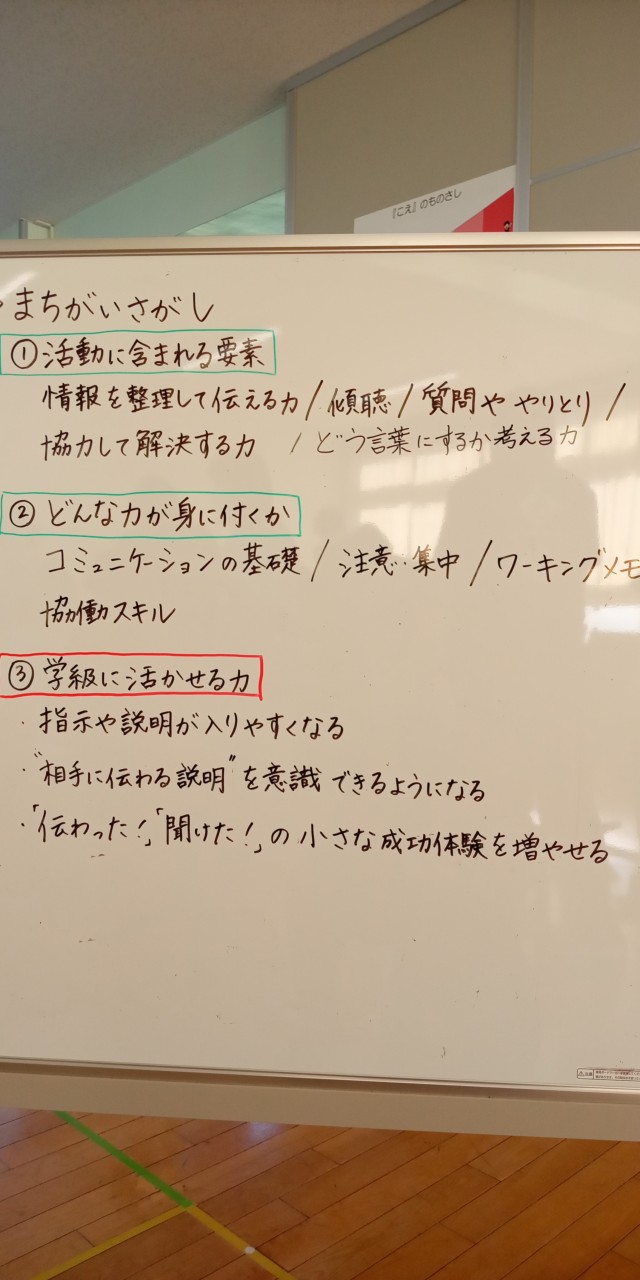 『こえ』のものさし
まちがいさがし
①活動に含まれる要素
情報を整理して伝える力/傾聴/質問や やりとり/
協力して解決する力 /どう言葉にするか考える力
②どんな力が身に付くか
コミュニケーションの基礎/注意・集中/ワーキングメモ
協働スキル
③学級に活かせる力
・指示や説明が入りやすくなる
・“相手に伝わる説明”を意識できるようになる
・「伝わった!」「聞けた!」の小さな成功体験を増やせる
⚠注意